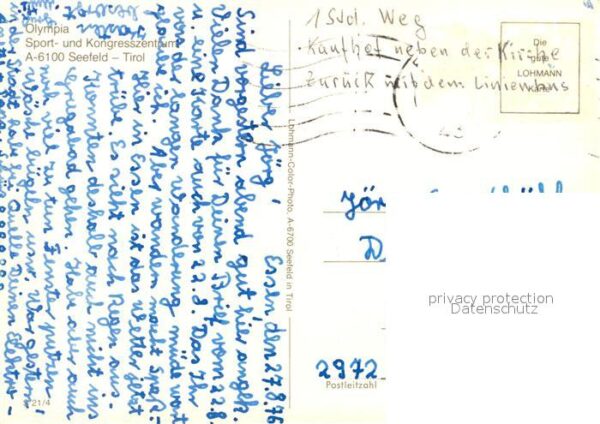 Olympia
Sport- und Kongresszentrum
A-6100 Seefeld – Tirol
1 Std. Weg
Kaufhof neben der Kirche
zurück mit dem Linienbus
Die
gute
LOHMANN
Karte
Essen, den 27.8.76
Lieber Jörg!
Sind vorgestern abend gut hier angek.
Vielen Dank für Deinen Brief vom 22.8.
u. eine Karte auch vom 22.8. Das Ihr
von der langen Wanderung müde wart
glaube ich. Aber wandern macht Spaß.
Hier in Essen ist das Wetter jetzt
trübe. Es sieht nach Regen aus.
Könnten deshalb auch nicht ins
Grugabad gehen. Habe aber auch
noch viel zu tun Fenster putzen
Wäsche bügeln usw. War gestern
Lohmann-Color-Photo, A-6700 Seefeld in Tirol
Jör
D
2972
Postleitzahl
privacy protection
Datenschutz
21/4